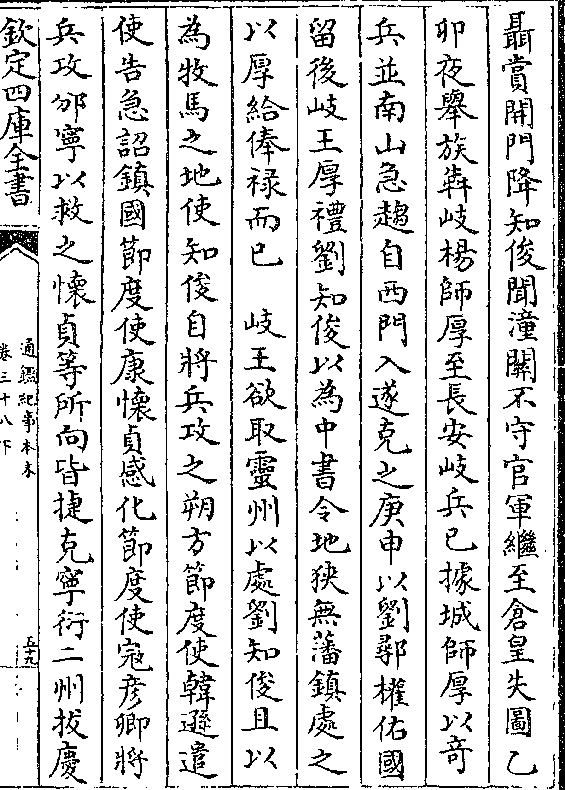 聶賞開門降知俊聞潼關不守官軍繼至倉皇失圖乙
卯夜舉族奔岐楊師厚至長安岐兵已據城師厚以奇
兵並南山急趨自西門入遂克之庚申以劉鄩權佑國
留後岐王厚禮劉知俊以為中書令地狹無藩鎮處之
以厚給俸禄而已　岐王欲取靈州以處劉知俊且以
為牧馬之地使知俊自將兵攻之朔方節度使韓遜遣
使告急詔鎮國節度使康懷貞感化節度使寇彦卿將
兵攻邠寧以救之懷貞等所向皆捷克寧衍二州拔慶
欽定四庫全書
通鑑紀事本末
卷三十八下
五十九